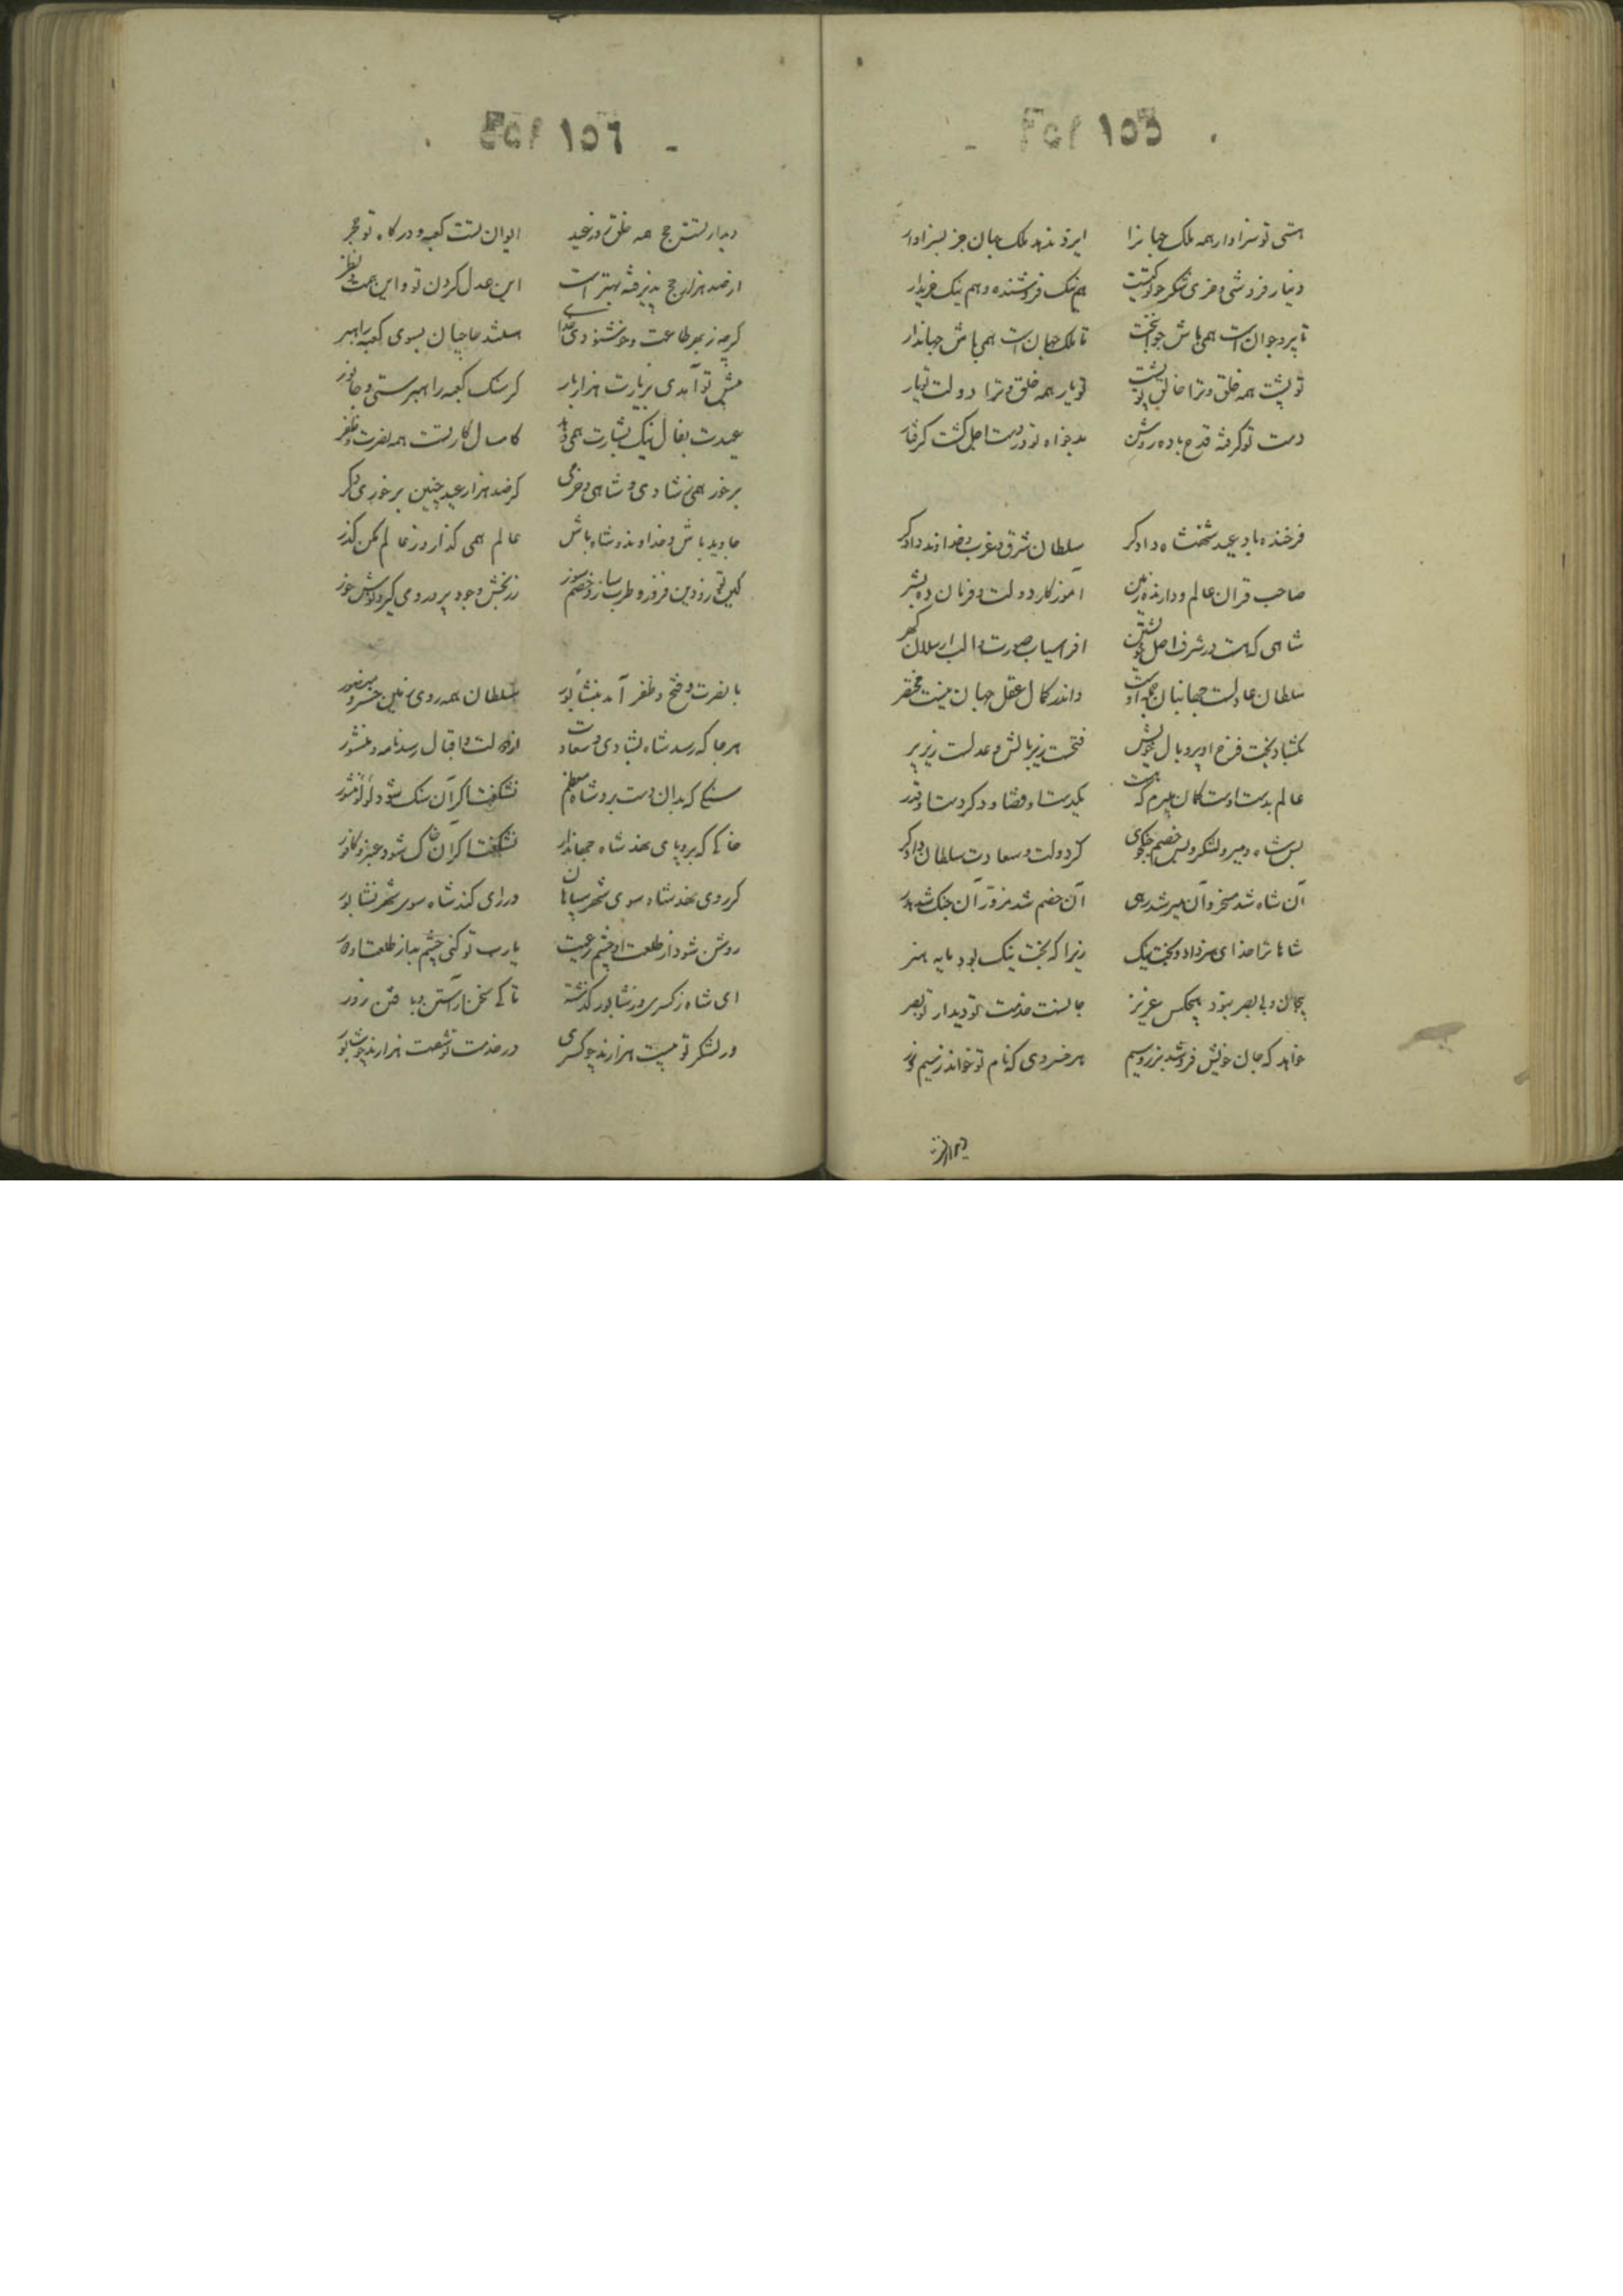 Fol 155
هستی تو سزاوار همه ملک جهانرا ایزد ندهد ملک جهان جز بسزاوار
دینار فروشی و خری شکر هم نیک فروشنده و هم نیک خریدار
تا پیر و جوان است همی باش جوانبخت تا ملک جهان است همی باش جهاندار
تو پشت همه خلق و ترا خالق تو پشت تو یار همه خلق و ترا دولت تو یار
دست تو گرفته قدح باده روشن بدخواه تو در دست اجل گشت گرفتار
فرخنده باد عید شهنشاه دادگر سلطان شرق و غرب و خداوند دادگر
صاحب قران عالم و دارنده زمین آموزگار دولت و فرمان ده بشر
شاهی که هست در شرف اصل خویشتن افراسیاب صورت و الب ارسلان گهر
سلطان عادلست جهانبان جمله اوست داند کمال عقل جهان نیست مختصر
بگشاد بخت فرخ او پر و بال خویش فتحست زیر بالش و عدلست زیر پر
عالم بدست اوست کمان میبرم که هست یکدست او قضا و دگر دست او قدر
بس شاه و میر و لشکر و بس خصم جنگجوی کز دولت و سعادت سلطان دادگر
آن شاه شد مسخر و آن میر شد رهی آن خصم شد مزور آن جنگ شد هدر
شاها ترا خدای هنر داد و بخت نیک زیرا که بخت نیک بود مایه هنر
بیجان و بی بصر نبود هیچکس عزیز جانست خدمت تو و دیدار تو بصر
خواهد که جان خویش فروشد بزر و سیم هر خسروی که نام تو خواند ز سیم و زر
دیدار
Fol 156
دیدار تست حج همه خلق روز عید ایوان تست کعبه و درگاه تو حجر
از صد هزار حج پذیرفته بهتر است این عدل کردن تو و این همت و نظر
گرچه ز بهر طاعت و خوشنودی خدا سنگست حاجیان بسوی کعبه راهبر
پیش تو آمدی بزیارت هزار بار گر سنگ کعبه راهبرستی و جانور
عیدت بفال نیک بشارت همی دهد کامسال کار تست همه نصرت و ظفر
برخور همی ز شادی و شاهی و خرمی گر صد هزار عید چنین برخوری دگر
جاوید باش و خداوند و شاه باش عالم همی گذار و ز عالم مکن گذر
گیتی توز و دین فروز و طرب ساز و خصم سوز زر بخش و جود پرور و می گیر و نوش خور
با نصرت و فتح و ظفر آمد بنشابور سلطان همه روی زمین خسرو منصور
هر جا که رسد شاه بشادی و سعادت از دولت و اقبال رسد نامه و منشور
سنگی که بدان دست برد شاه معظم نشگفت اگر آن سنگ شود لؤلؤ منثور
خاکی که برو پای نهد شاه جهاندار نشگفت اگر آن خاک شود عنبر و کافور
گر روی نهد شاه سوی شهر سپاهان ور رای کند شاه سوی شهر نشابور
روشن شود از طلعت او چشم رعیت یارب تو کنی چشم بد از طلعت او دور
ای شاه ز کسری و ز شابور گذشته تا کی سخن آراستن و بافتن زور
در لشکر تو بیست هزارند چو کسری در خدمت تو شصت هزارند چو شابور